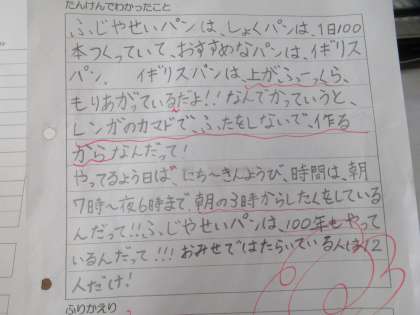 たんけんでわかったこと
ふじやせいパンは、しょくパンは、1日100
本つくっていて、おすすめなパンは、イギリス
パン。 イギリスパンは、上がふーっくら、
もりあがっているだよ!!なんでかっていうと、
レンガのカマドで、ふたをしないで、作る
からなんだって!
やってるよう日は、にち〜きんようび、時間は、朝
7時〜夜6時まで、朝の3時からしたくをしている
んだって!!ふじやせいパンは、100年もやって
いるんだって!!!おみせではたらいている人は12
人だけ!
ふりかえり